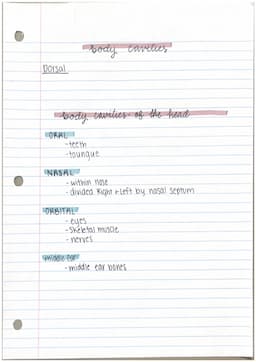 body cavities
Dorsal
body cavities of the head
ORAL
- teeth
- toungue
NASAL
- within nose
- divided Right & left by nasal septum
ORBITAL
- eyes
- skeletal muscle
- nerves
middle ear
- middle ear bones